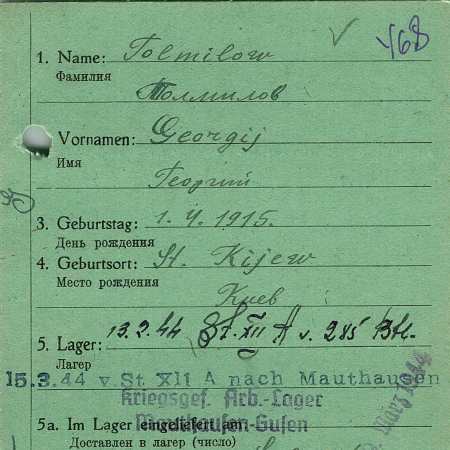 468
1. Name: Tolmilow
Фамилия
Толмилов
Vornamen: Georgij
Имя
Георгий
3. Geburtstag: 1. 4. 1915.
День рождения
4. Geburtsort: St. Kijew
Место рождения
Киев
5. Lager: 13.2.44 St. XII A v. 285 Btl.
Лагер
15.3.44 v. St XII A nach Mauthausen
Kriegsgef. Arb.-Lager
Mauthausen-Gusen
5a. Im Lager eingeliefert am:
Доставлен в лагер (число)
März 1944